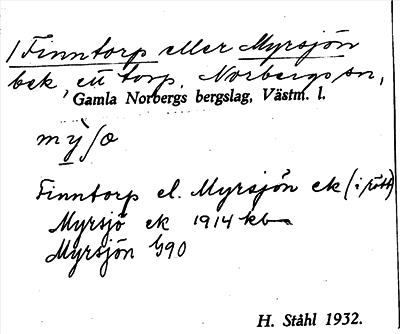 1 Finntorp eller Myrsjön
bek, ett torp, Norbergs sn,
Gamla Norbergs bergslag, Västm. l.
Finntorp el. Myrsjön ek (i rött)
Myrsjö ek 1914 kb
Myrsjön G90
H. Ståhl 1932.